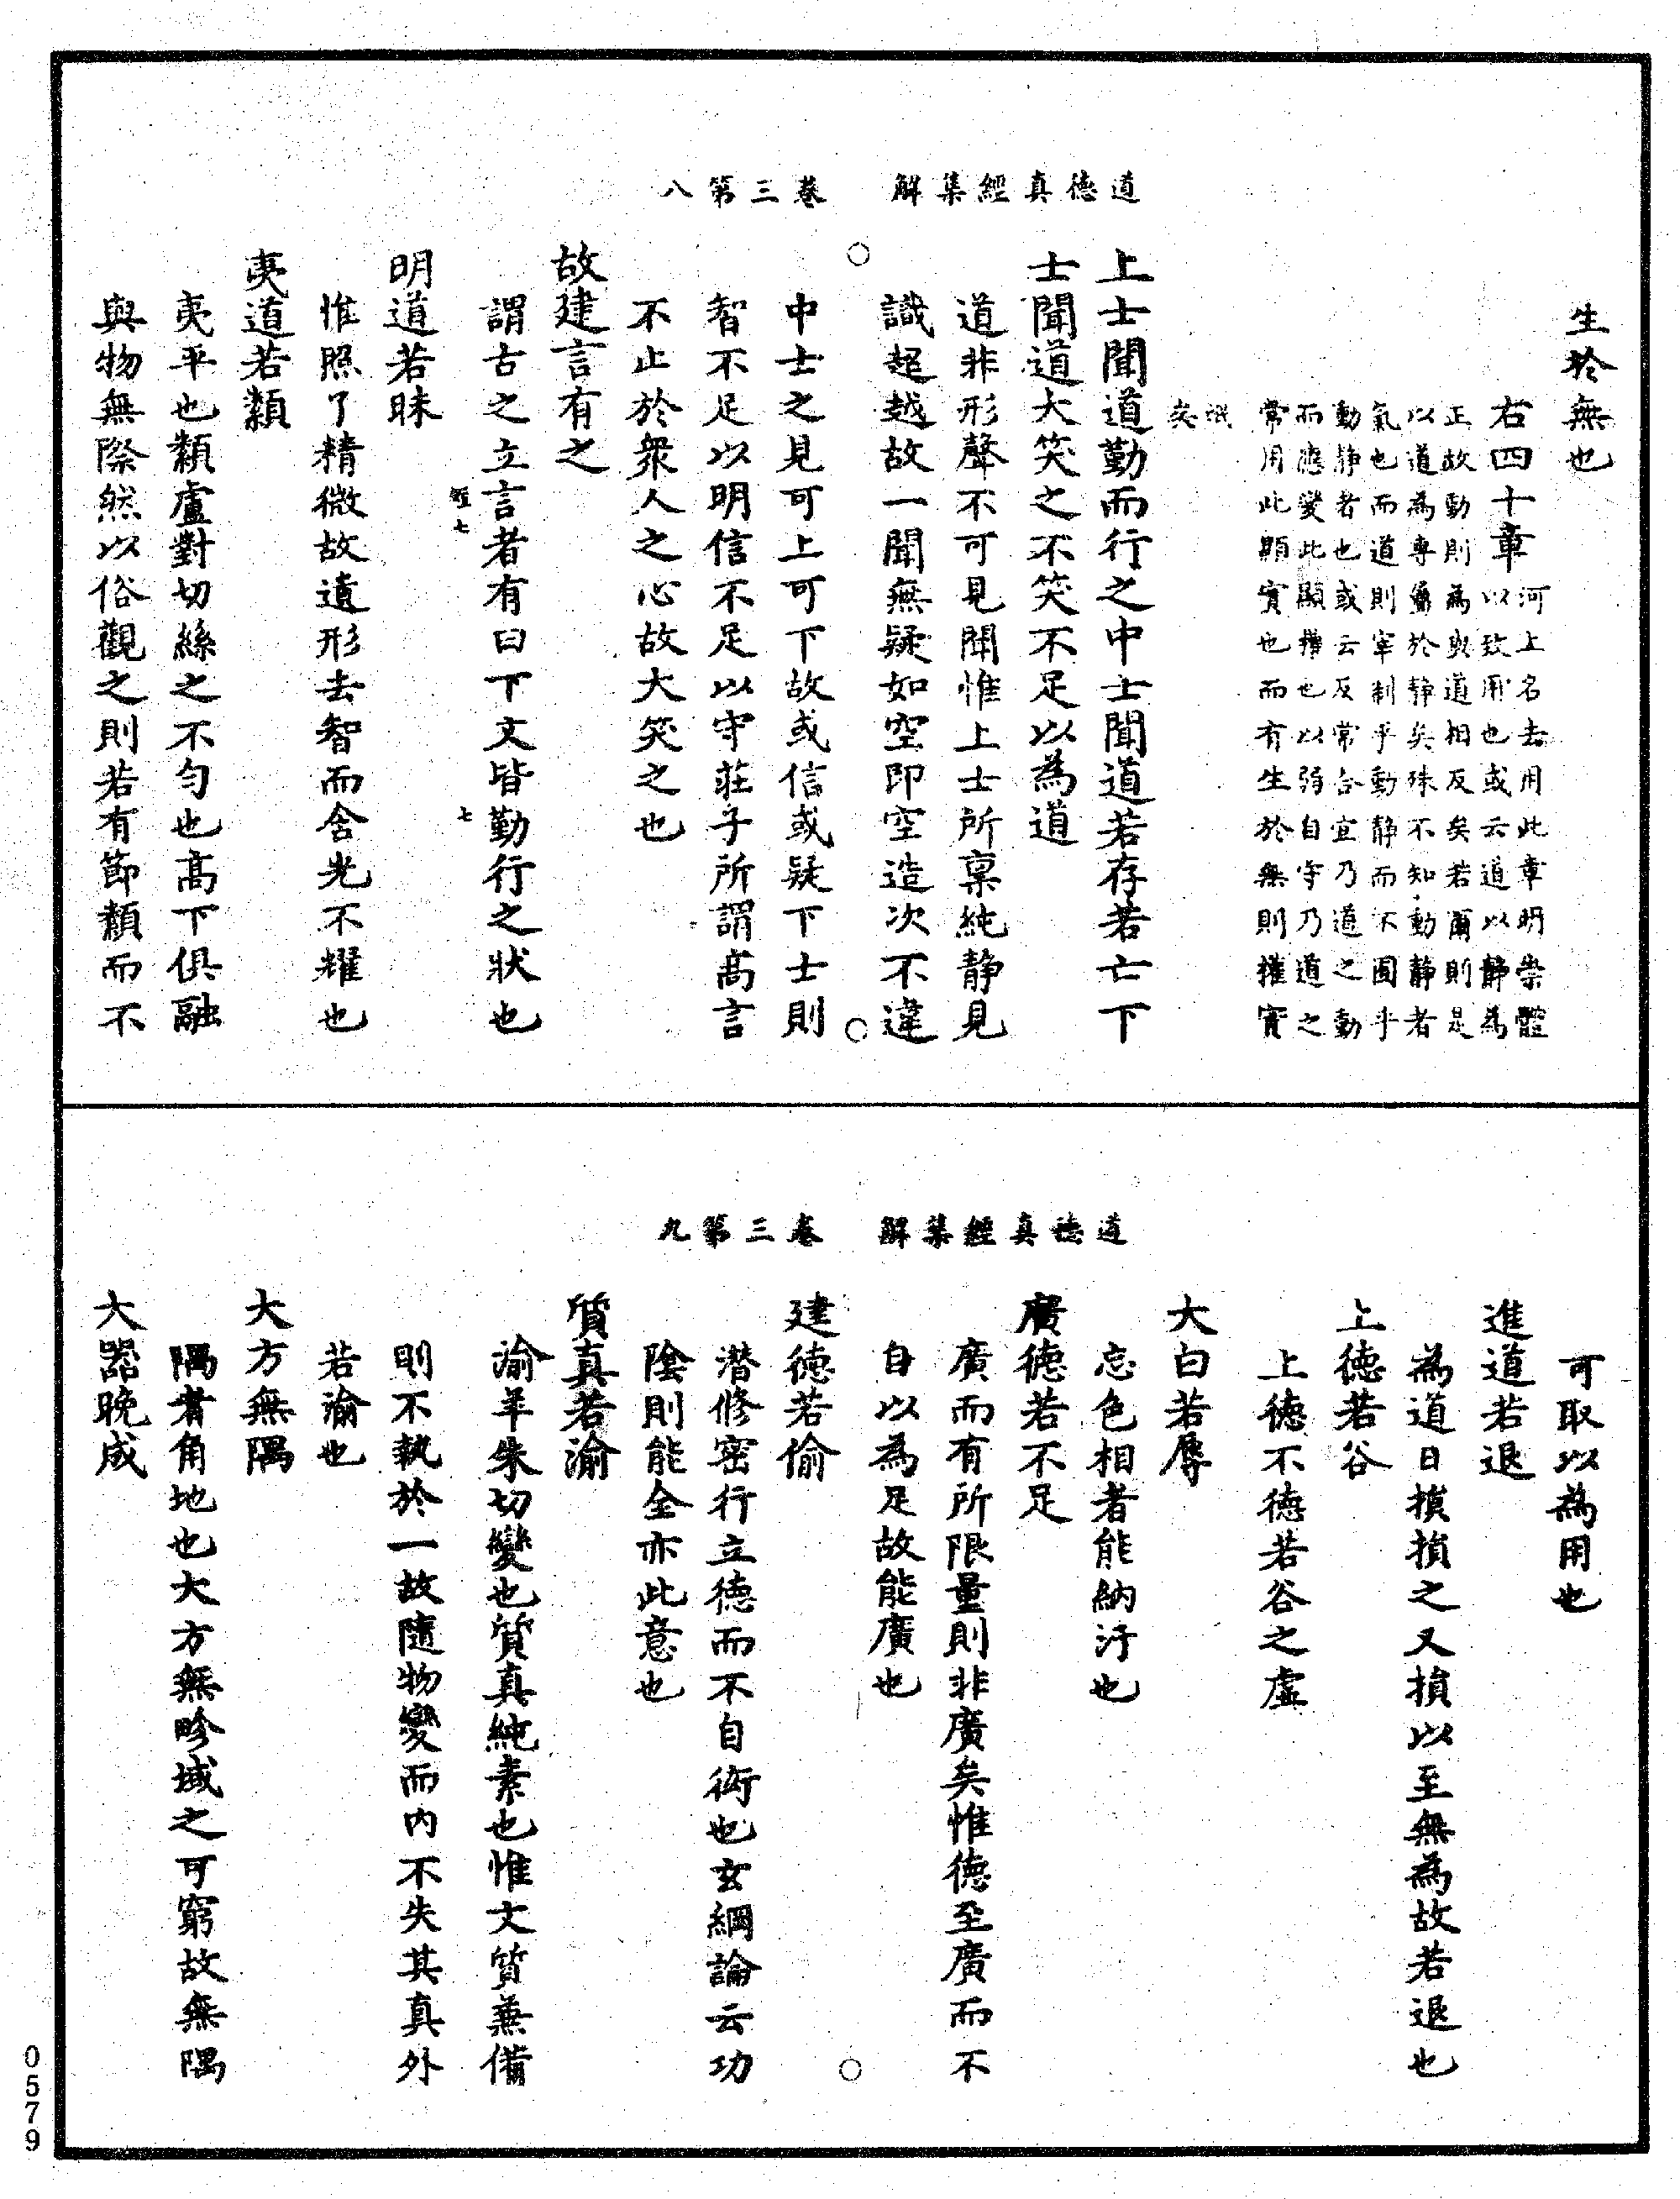 道德真經集解　卷三第八
生於無也
右四十章
河上名去用此章明崇體
以致用也或云道以靜為
正故動則為與道相反矣若爾則是
以道為專屬於靜矣殊不知動靜者
氣也而道則宰制乎動靜而不囿乎
動靜者也或云反常合宜乃道之動
而應變此顯權也以弱自守乃道之
常用此顯實也而有生於無則權實
泯
矣
上士聞道勤而行之中士聞道若存若亡下
士聞道大笑之不笑不足以為道
道非形聲不可見聞惟上士所稟純靜見
識超越故一聞無疑如空即空造次不違
中士之見可上可下故或信或疑下士則
智不足以明信不足以守莊子所謂高言
不止於衆人之心故大笑之也
故建言有之
謂古之立言者有曰下文皆勤行之狀也
七
明道若昧
惟照了精微故遺形去智而含光不耀也
夷道若纇
夷平也纇盧對切絲之不勻也高下俱融
與物無際然以俗觀之則若有節纇而不
道德真經集解　卷三第九
可取以為用也
進道若退
為道日損損之又損以至無為故若退也
上德若谷
上德不德若谷之虛
大白若辱
忘色相者能納汙也
廣德若不足
廣而有所限量則非廣矣惟德至廣而不
自以為足故能廣也
建德若偷
潛修密行立德而不自衒也玄綱論云功
陰則能全亦此意也
質真若渝
渝羊朱切變也質真純素也惟文質兼備
則不執於一故隨物變而內不失其真外
若渝也
大方無隅
隅者角地也大方無畛域之可窮故無隅
大器晚成
0579